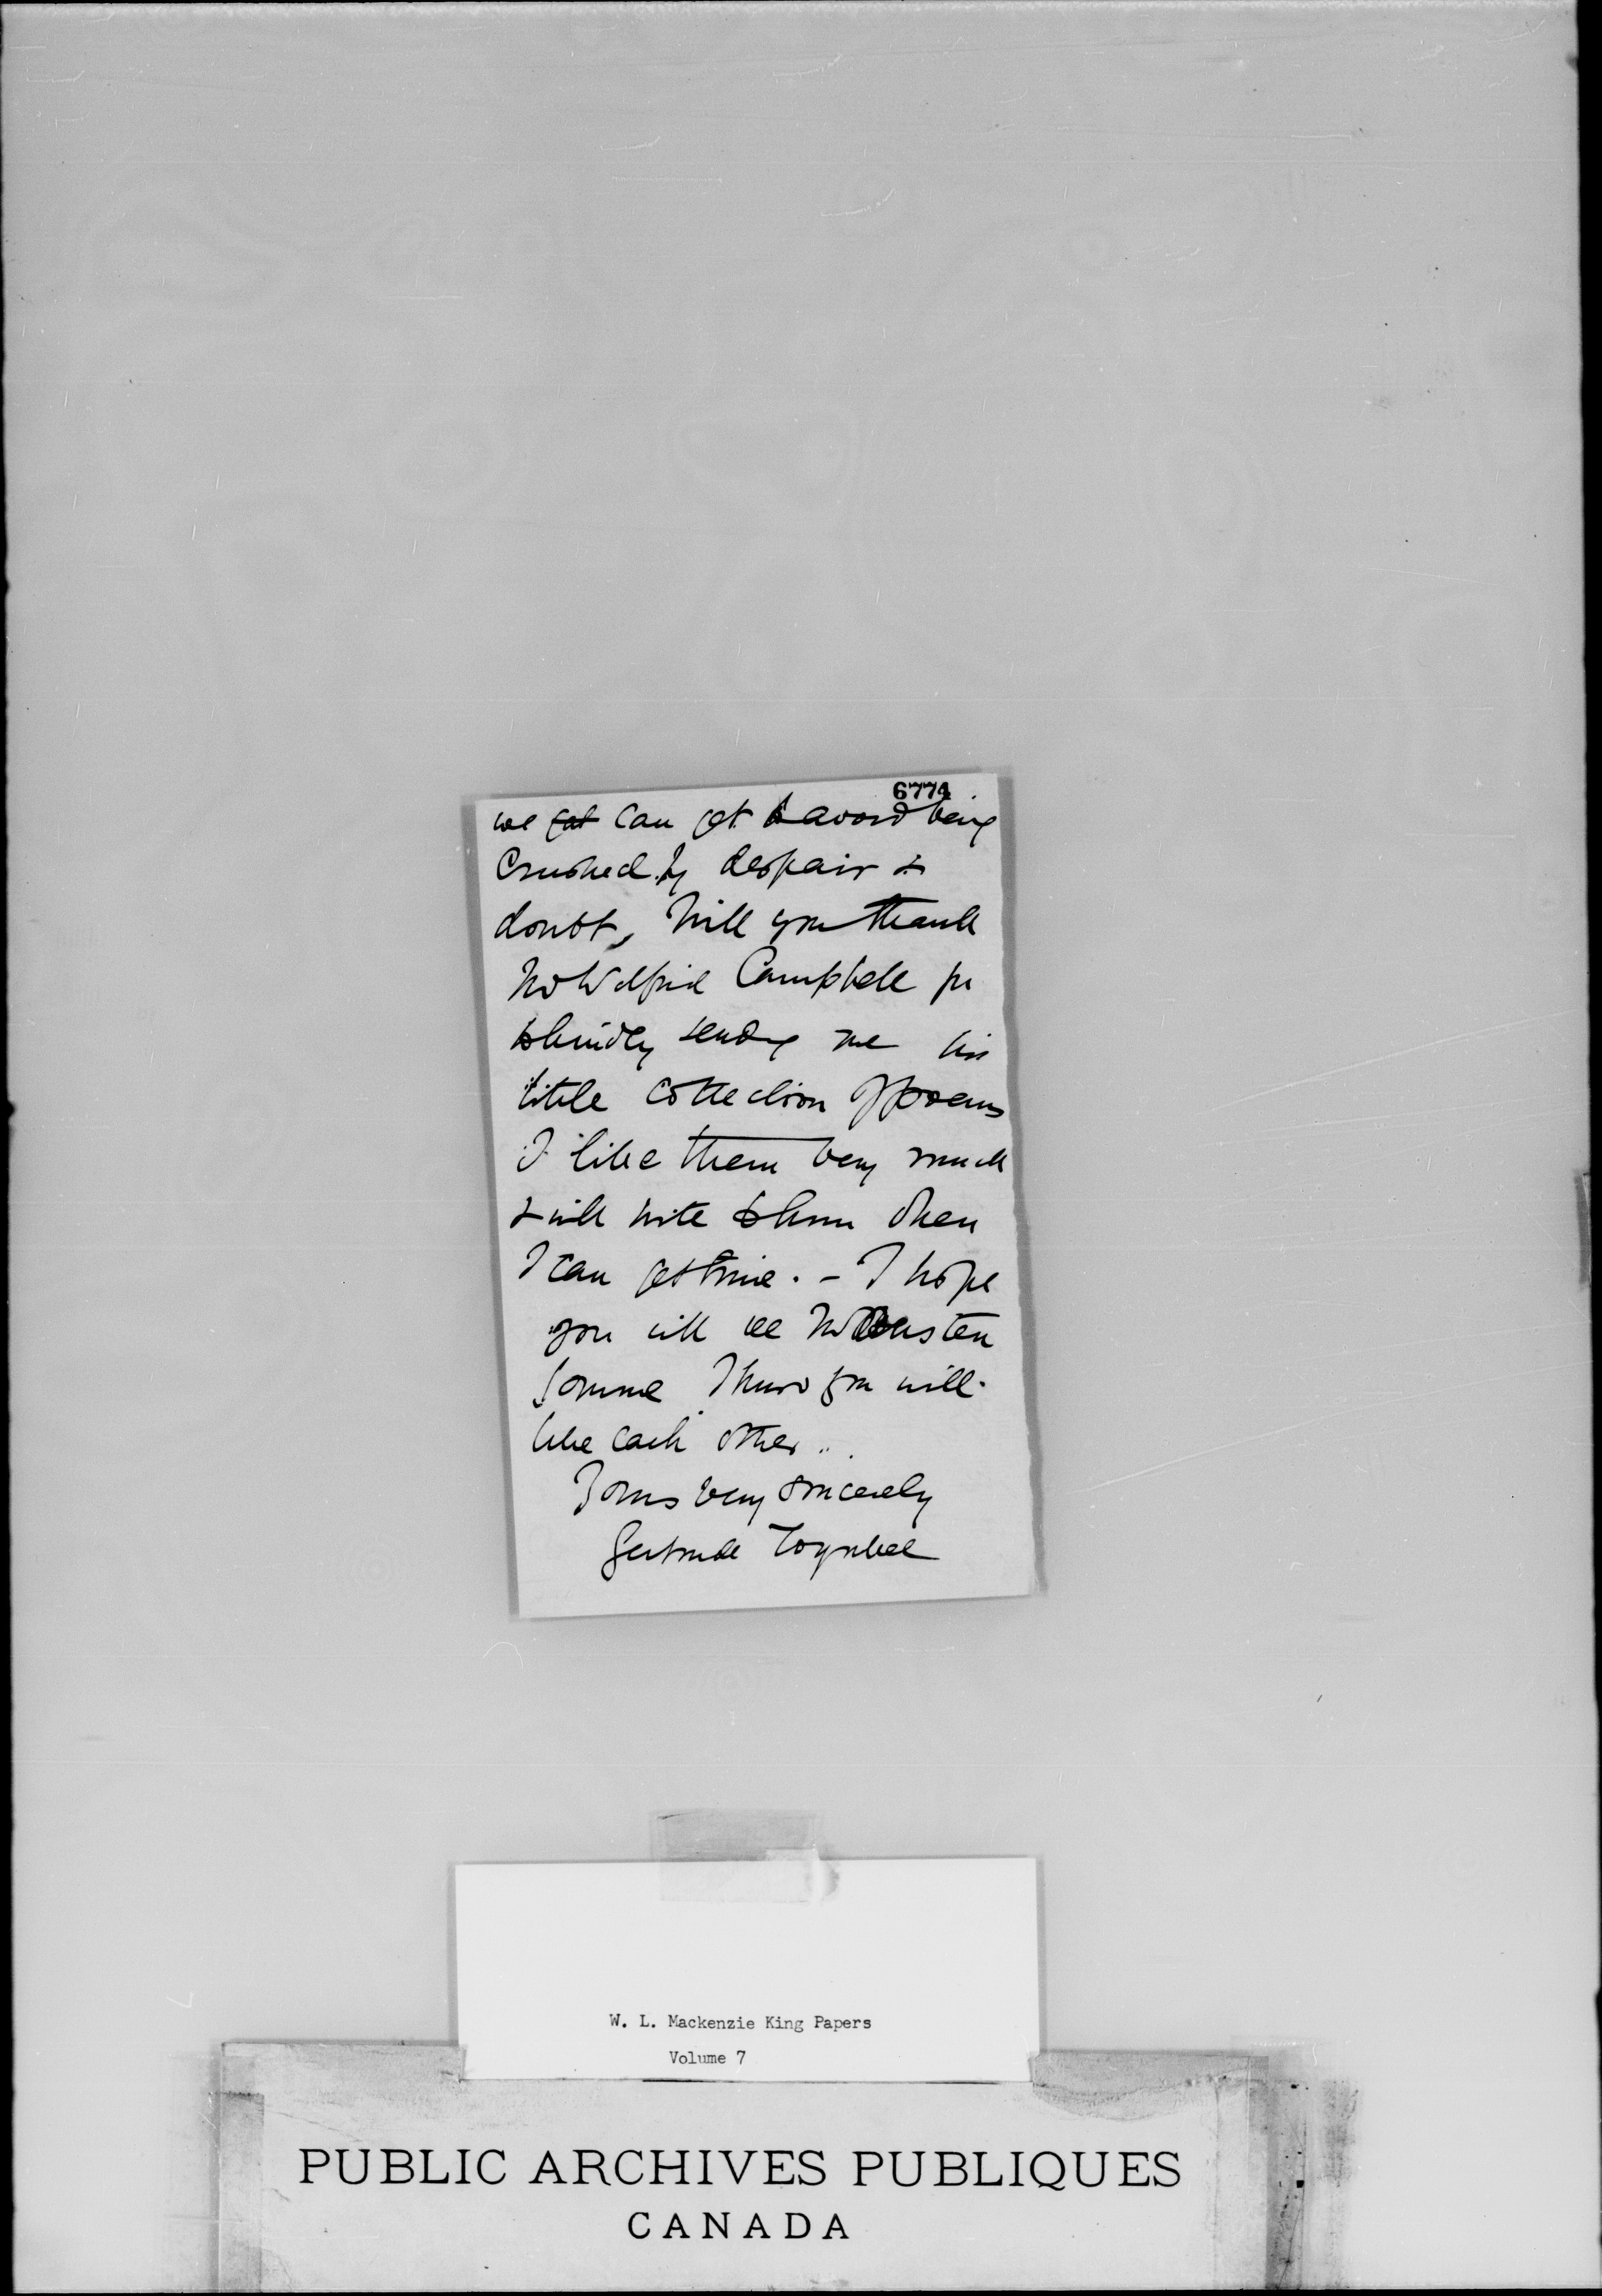 6774
we got can get to avoid being
Crushed by despair &
doubt, Will you thank
Mr Wilfrid Campbell for
so kindly sending me his
little collection of poems
I like them very much
& will write to him when
I can get time. – I hope
you will see Mr
some I know you will
like each other..
Yours very sincerely
Gertrude Toynbee
W. L. Mackenzie King Papers
Volume 7
PUBLIC ARCHIVES PUBLIQUES
CANADA